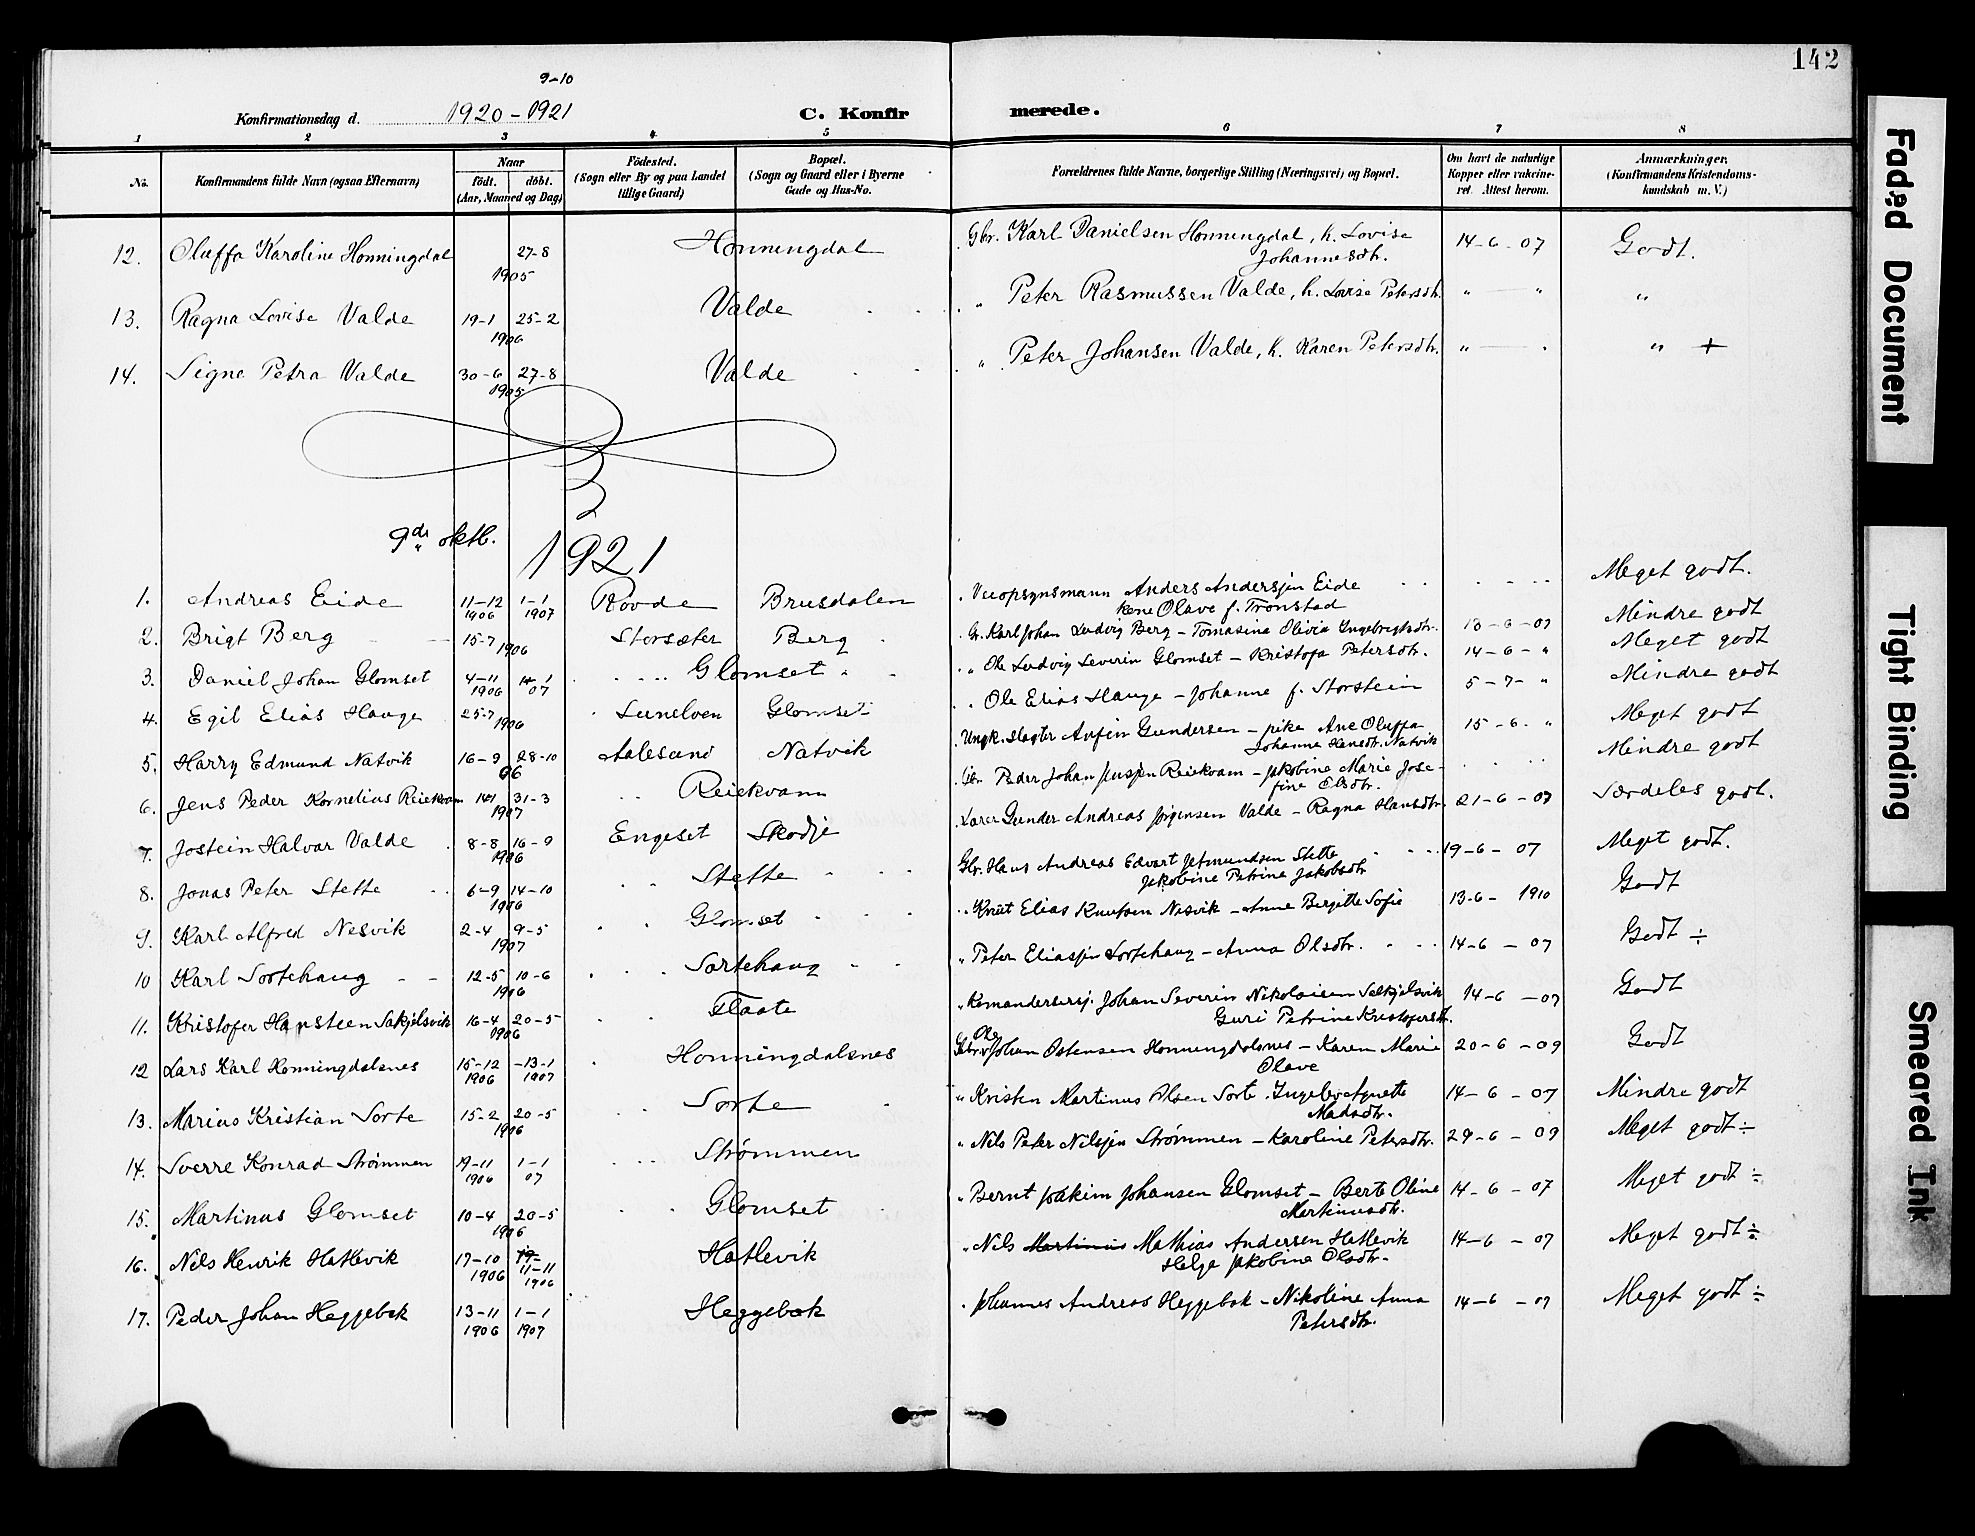 142
9-10
Konfirmationsdag d. 1920 - 1921 C. Konfirmerede.
1 2 3 4 5 6 7 8
No. Konfirmandens fulde Navn (ogsaa Efternavn) Naar født. døbt. (Aar, Maaned og Dag) Födested. (Sogn eller By og paa Landet tillige Gaard) Bopæl. (Sogn og Gaard eller i Byerne Gade og Hus-No. Forældrenes fulde Navne, borgerlige Stilling (Næringsvei) og Bopæl. Om havt de naturlige Kopper eller vakcineret. Attest herom. Anmærkninger. (Konfirmandens Kristendomskundskab m. V.)
12. Oluffa Karoline Honningdal 27-8 1905 Honningdal Gbr. Karl Danielsen Honningdal, h. Lovise Johannesdtr. 14-6-07 Godt.
13. Ragna Lovise Valde 19-1 25-2 1906 Valde " Peter Rasmussen Valde, h. Lovise Petersdtr. " — " "
14. Signe Petra Valde 30-6 27-8 1905 Valde " Peter Johansen Valde, h. Karen Petersdtr. " — " " +
9de oktb. 1921
1. Andreas Eide 11-12 1906 1-1 1907 Rovde Brusdalen Veiopsynsmann Anders Andersen Eide kone Olave f. Tronstad Meget godt.
2. Brigt Berg 15-7 1906 Storsæter Berg Karl Johan Ludvig Berg - Tomasina Olivia Ingebrigtsdtr. 13-6-07 Mindre godt
3. Daniel Johan Glomset 4-11 1906 14-1 07 Glomset " Ole Ludvig Severin Glomset - Kristofa Petersdtr. 14-6- " Meget godt
4. Egil Elias Hauge 25-7 1906 Sunelven Glomset Ole Elias Hauge - Johanne f. Storstein 5-7- " Mindre godt
5. Harry Edmund Natvik 16-9 28-10 06 Aalesund Natvik Ungk. slagter Anfin Gundersen - pike Ane Oluffa Johanne Hansdtr. Natvik 15-6. " Meget godt
6. Jens Peder Kornelius Reiekvam 31-3 1907 Reiekvam Peder Johan Jensen Reiekvam - Jakobine Marie Josefine Elsdtr. Mindre godt
7. Jostein Halvar Valde 8-8 16-9 1906 Engeset Skodje Lærer Gunder Andreas Jørgensen Valde - Ragna Hansdtr. 21-6-07 Særdeles godt.
8. Jonas Peter Stette 6-9 14-10 1906 Stette Gbr. Hans Andreas Edvart Jetmundsen Stette Jakobine Petrine Jakobsdtr 19-6-07 Meget godt.
9. Karl Alfred Nesvik 2-4 9-5 1907 Glomset Knut Elias Knutsen Nesvik - Anne Birgitte Sofie 13-6- 1910 Godt
10 Karl Sortehaug 12-5 10-6 1906 Sortehaug " Peter Eliassen Sortehaug - Anna Olsdtr. 14-6-07 Godt ÷
11. Kristofer Hansteen Sakjelsvik 16-4 20-5 1906 Flaate Johan Severin Nikolaisen Guri Petrine Kristofersdtr. 14-6-07 Godt
12 Lars Karl Honningdalsnes 15-12 1906 -13-1 1907 Honningdalsnes Gbr. Ole Johan Ostensen Honningdalsnes - Karen Marie Olave 20-6-09 Godt
13. Marius Kristian Sorte 15-2 20-5 1906 Sorte " Kristen Martinus Olsen Sorte. Ingeborg Agnette Madsdtr. 14-6-07 Mindre godt
14. Sverre Konrad Strømmen 19-11 1906 1-1 07 Strømmen " Nils Peter Nilssen Strømmen - Karoline Petersdtr. 29-6-09 Meget godt ÷
15. Martinus Glomset 10-4 20-5 1906 Glomset " Bernt Joakim Johansen Glomset - Berte Oline Martinusdtr. 14-6-07 Meget godt ÷
16. Nils Henrik Hatlevik 17-10 1906 19- 11-11 1906 Hatlevik " Nils Martinus Mathias Andersen Hatlevik Helga Jakobine Olsdtr. 14-6-07 Meget godt ÷
17. Peder Johan Heggebak 13-11 1906 1-1 1907 Heggebak Johannes Andreas Heggebak - Nikoline Anna Petersdtr. 14-6-07 Meget godt ÷
Faded Document
Tight Binding
Smeared Ink